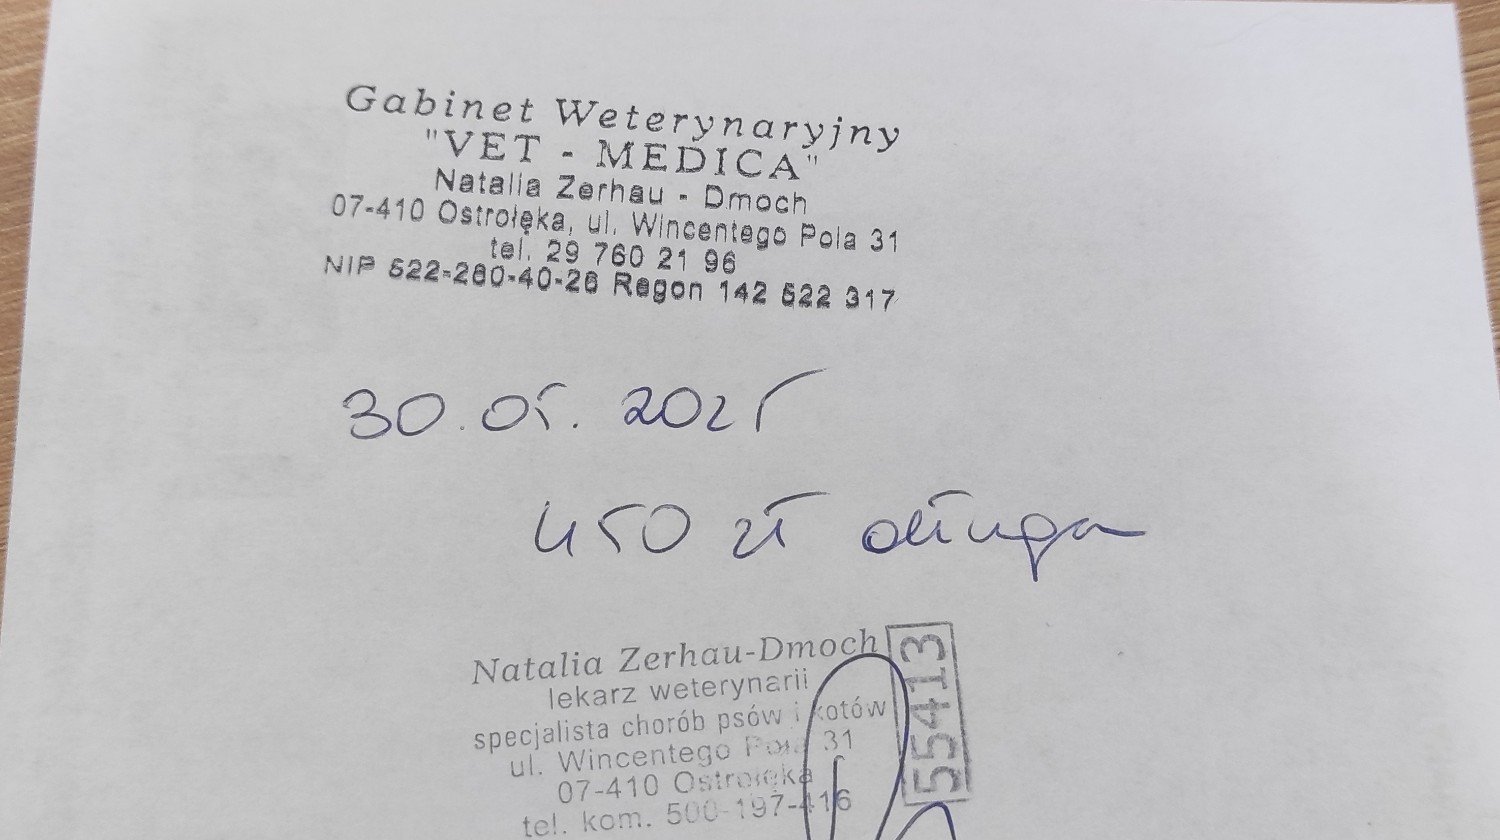 Gabinet Weterynaryjny
"VET - MEDICA"
Natalia Zerhau - Dmoch
07-410 Ostrołęka, ul. Wincentego Pola 31
tel. 29 760 21 96
NIP 522-280-40-26 Regon 142 522 317
30.05.2025
450 zł długa
Natalia Zerhau-Dmoch
lekarz weterynarii
specjalista chorób psów i kotów
ul. Wincentego Pola 31
07-410 Ostrołęka
tel. kom. 500-197-416
55413